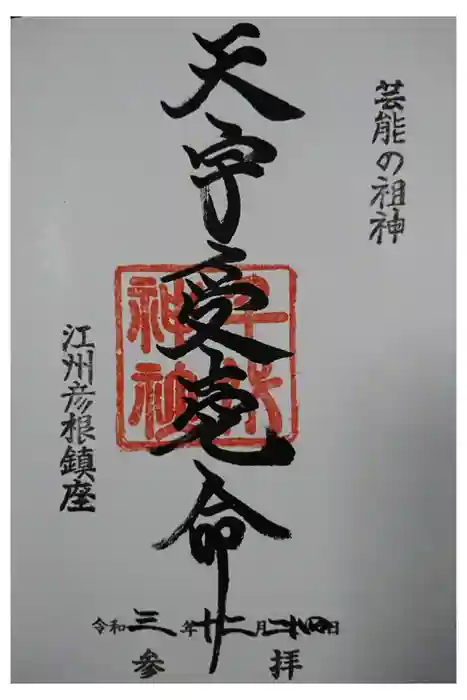 芸能の祖神
天宇受売命
千代
神社
江州彦根鎮座
令和三年十二月二十四日
参拝